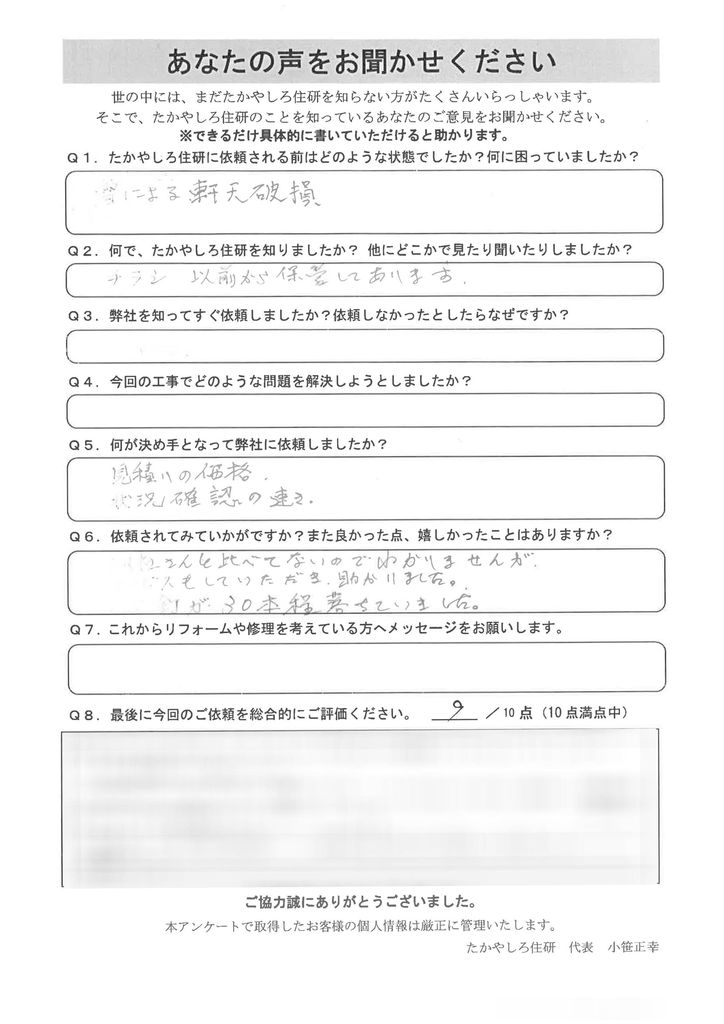 あなたの声をお聞かせください
世の中には、まだたかやしろ住研を知らない方がたくさんいらっしゃいます。
そこで、たかやしろ住研のことを知っているあなたのご意見をお聞かせください。
※できるだけ具体的に書いていただけると助かります。
Q1．たかやしろ住研に依頼される前はどのような状態でしたか？何に困っていましたか？
による軒天破損
Q2．何で、たかやしろ住研を知りましたか？ 他にどこかで見たり聞いたりしましたか？
チラシ 以前から保管してあります.
Q3．弊社を知ってすぐ依頼しましたか？依頼しなかったとしたらなぜですか？
Q4．今回の工事でどのような問題を解決しようとしましたか？
Q5．何が決め手となって弊社に依頼しましたか？
見積りの価格.
状況確認の速さ.
Q6．依頼されてみていかがですか？また良かった点、嬉しかったことはありますか？
さんと比べてないのでわかりませんが.
もしていただき.助かりました。
が30本程落ちていました。
Q7．これからリフォームや修理を考えている方へメッセージをお願いします。
Q8．最後に今回のご依頼を総合的にご評価ください。 9 ／10点（10点満点中）
ご協力誠にありがとうございました。
本アンケートで取得したお客様の個人情報は厳正に管理いたします。
たかやしろ住研　代表　小笹正幸